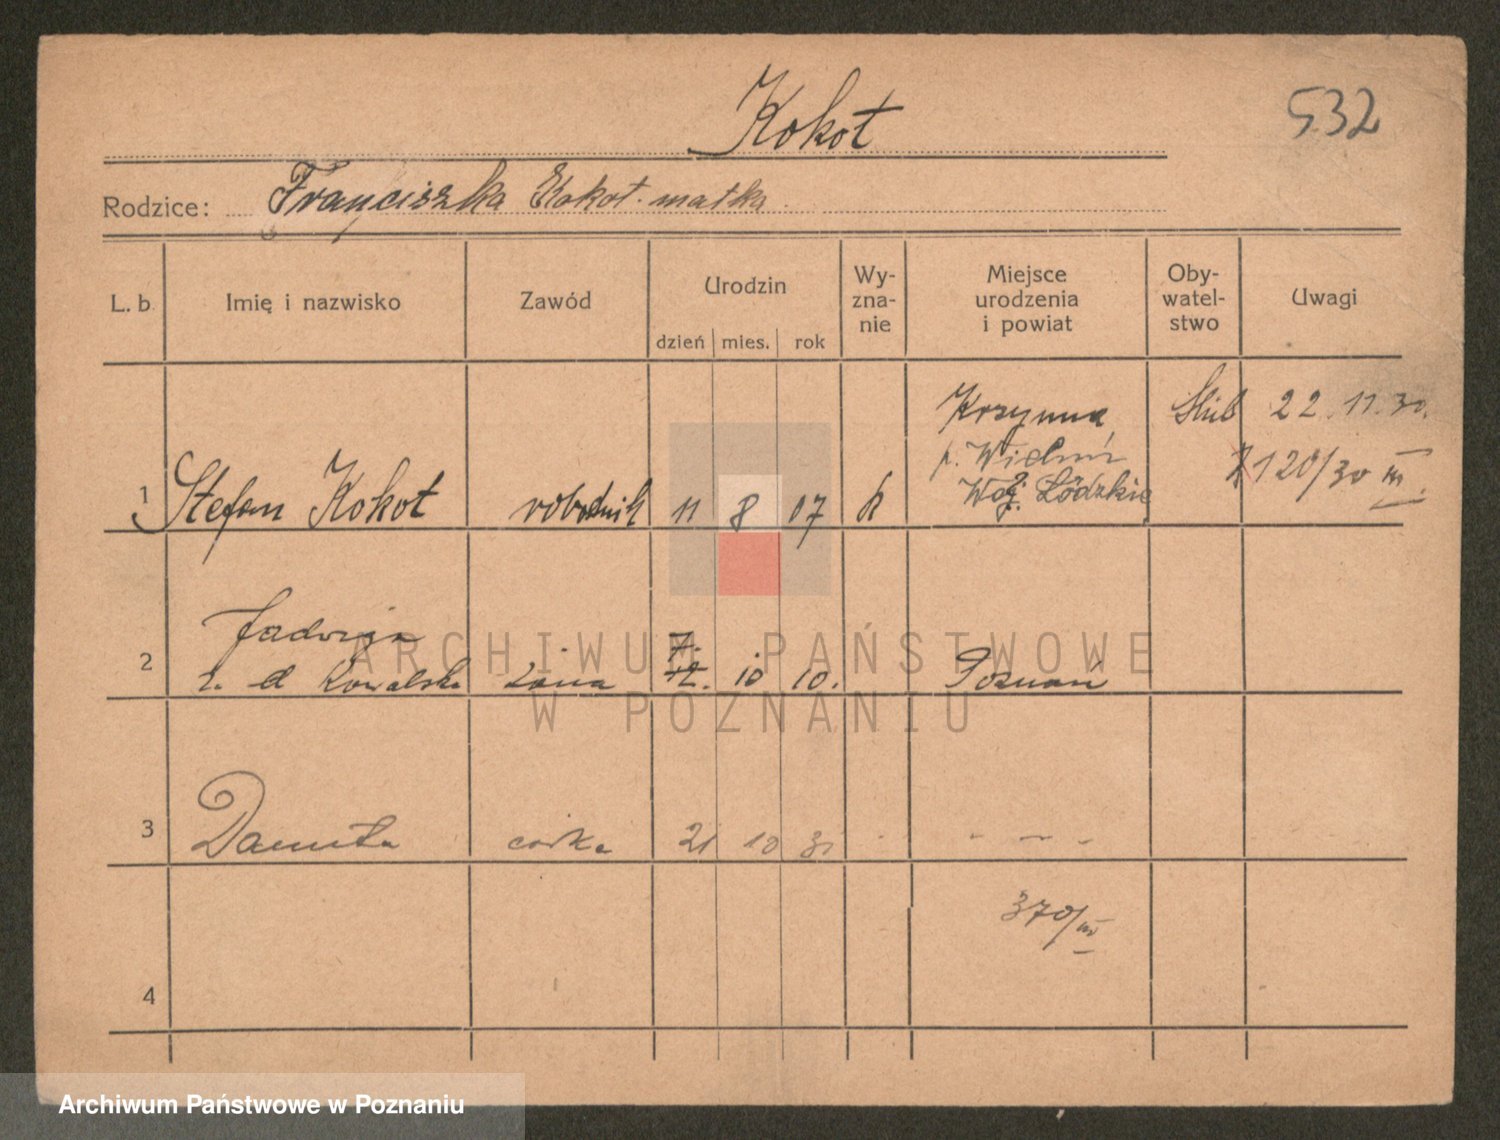 Kokot
532
Rodzice: Franciszka Kokot. matka
L. b. Imię i nazwisko Zawód Urodzin dzień mies. rok Wy-zna-nie Miejsce urodzenia i powiat Oby-watel-stwo Uwagi
Krzymna Ślub 22.11.30.
p. Wieluń 120/30 III
Woj. Łódzkie
1 Stefan Kokot robotnik 11 8 07 k
Jadwiga 7.
2 z. d Kowalska żona 12. 10 10. Poznań
3 Danuta córka 21 10 31 - - -
370/III
4
ARCHIWUM PAŃSTWOWE
W POZNANIU
Archiwum Państwowe w Poznaniu